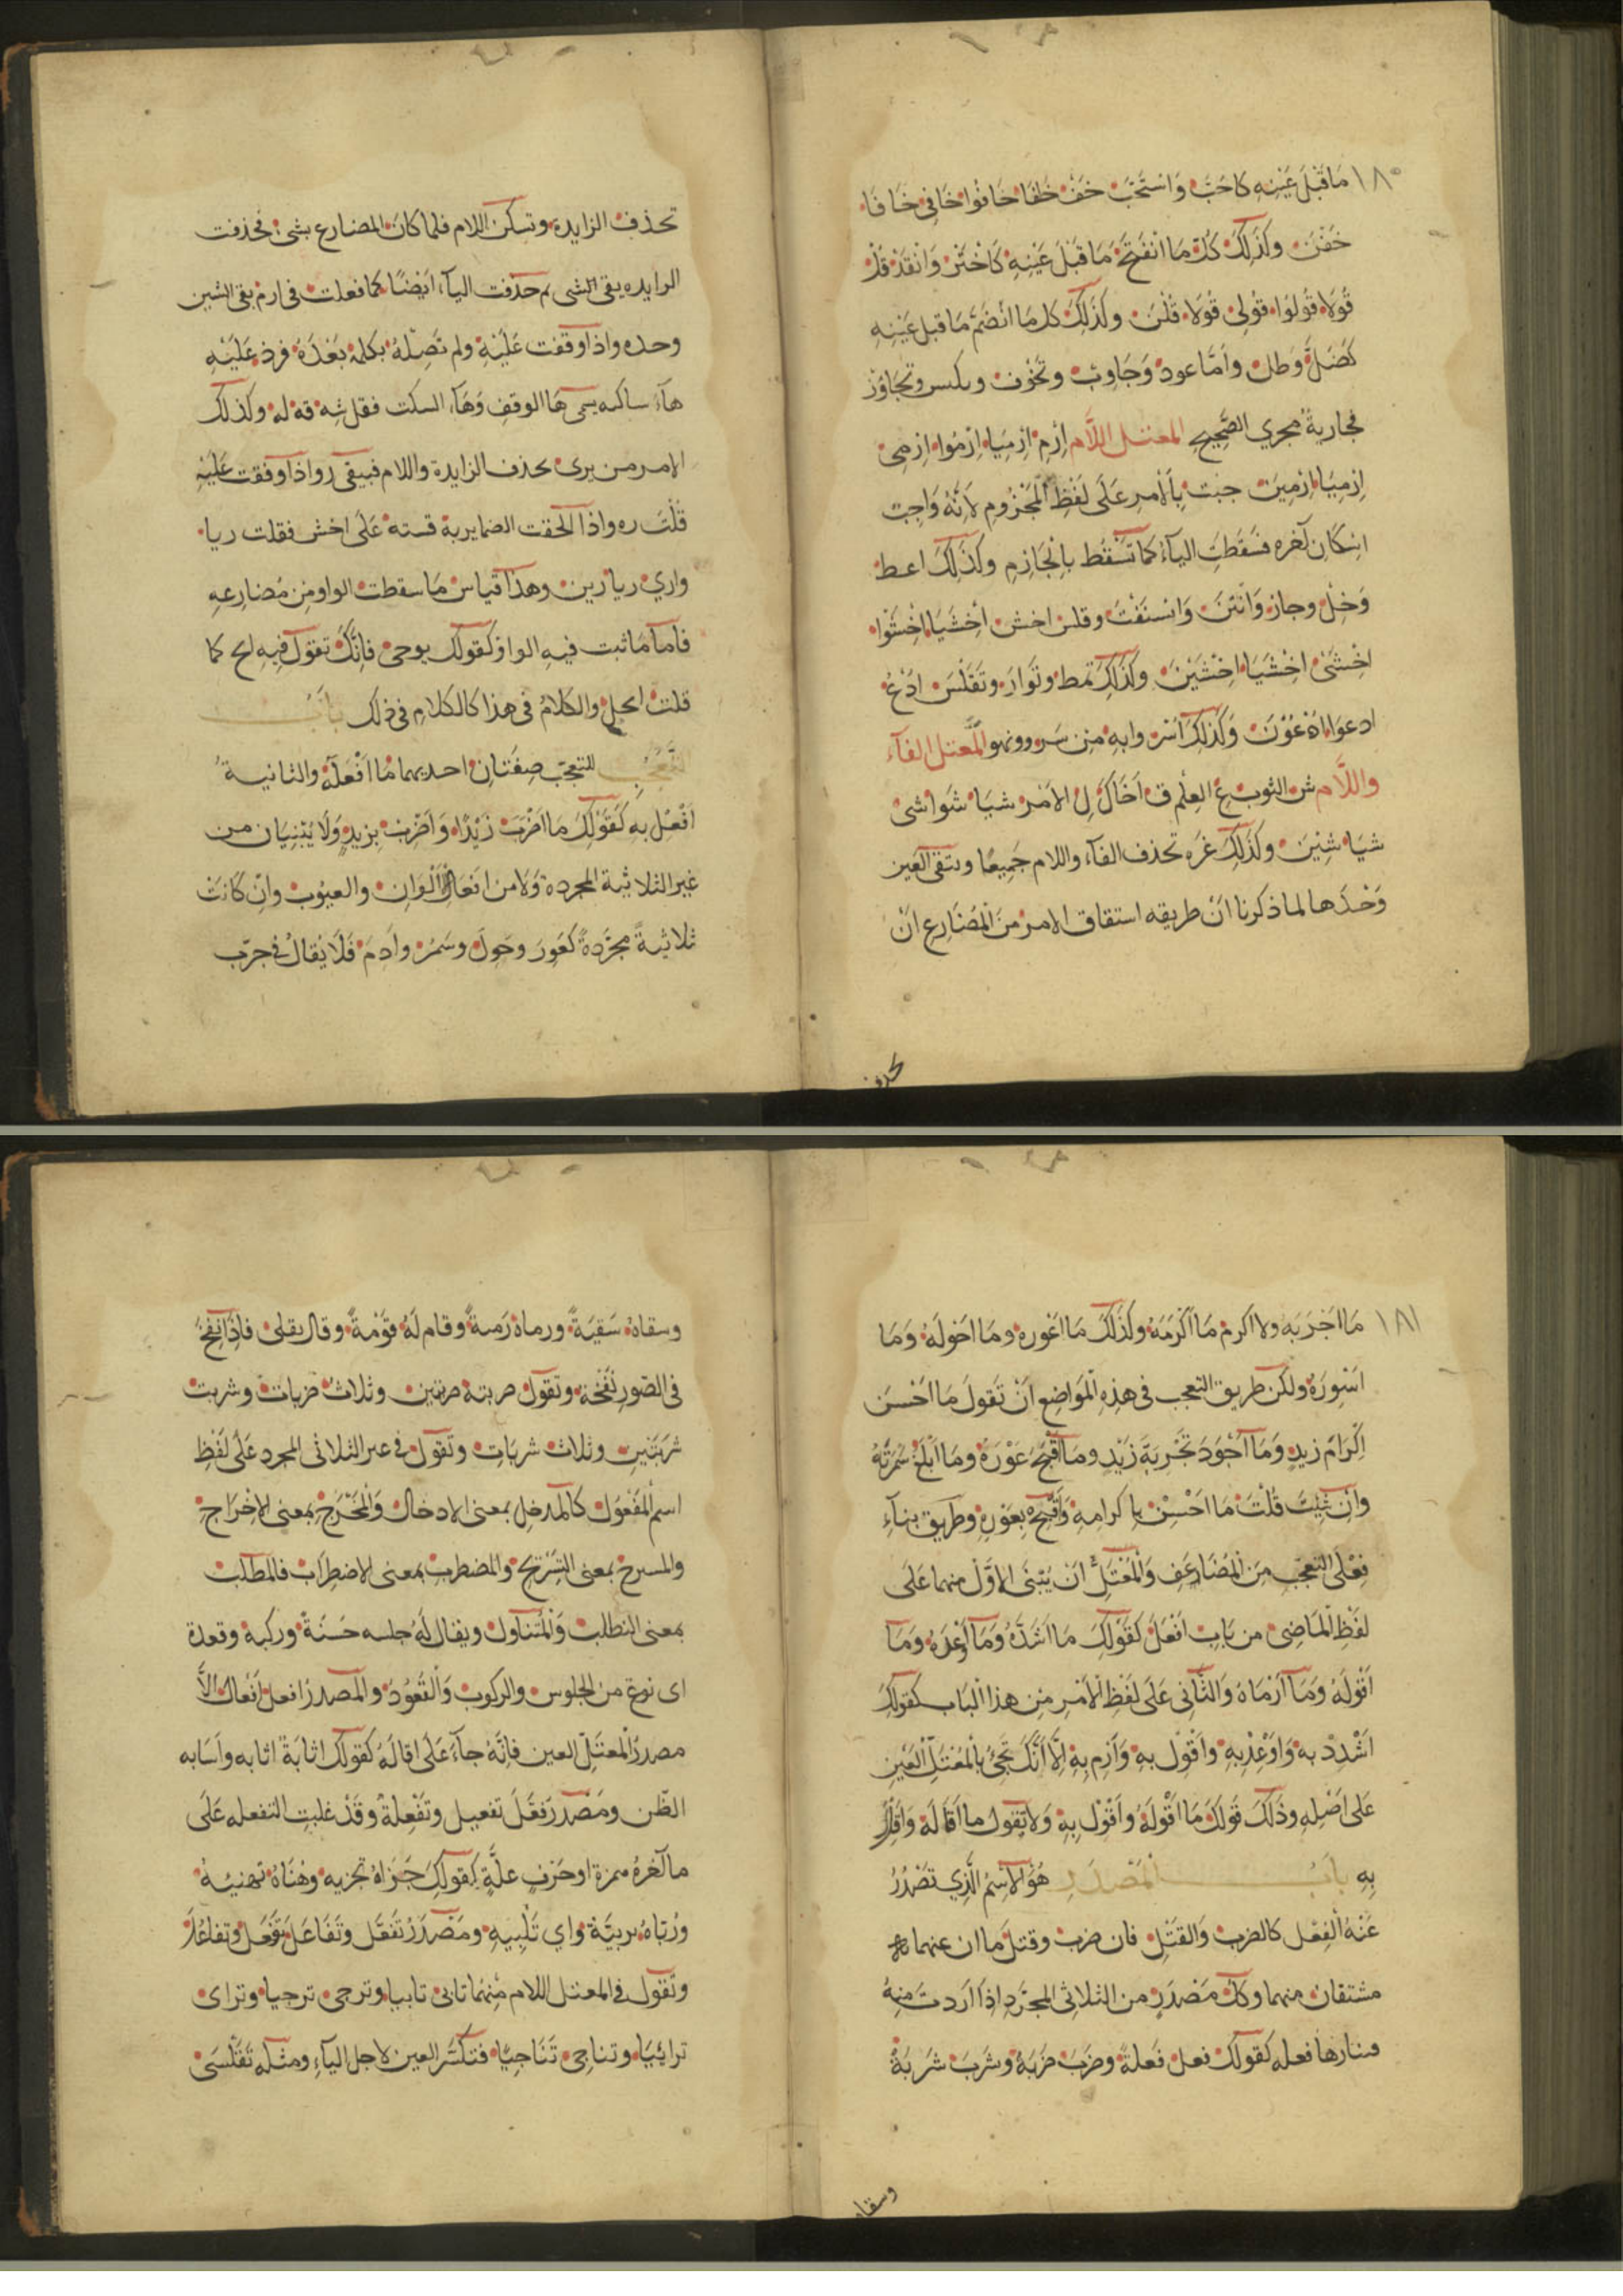 ١٨٠
مَا قَبْلَ عَيْنِهِ كاحَبّ وَاسْتَحَبّ خَفْ خَافَا خَافُوا خَافِى خَافَا
خَفْنَ وكَذلِكَ كُلّ مَا انْفَتَحَ مَا قَبْلَ عَيْنِهِ كَاخْتَرْ وَانْقَدْ قُلْ
قُولَا قُولُوا قُولِى قُولَا قُلْنَ وكَذلِكَ كل مَا انْضَمّ مَا قبل عَيْنِهِ
وطل وامّا عود وَجَاوِب وتجاوز
فجارية مجرى الصَّحِيح المعتل اللَّام اِرْمِ اِرْمِيَا اِرْمُوا اِرْمِى
اِرْمِيَا اِرْمِينَ جئت بِالْاَمر عَلَى لَفْظِ الْمَجْزُومِ لِانَّهُ وَاجِبٌ
اسكان آخره فسَقَطَتِ اليآءُ كما تَسْقُط بِالْجَازِمِ وكَذلِكَ اعط
وَخَلّ وجاز وَقلس اخش اخْشَيَا اخْشَوْا
اخْشَىْ اخْشَيَا اخْشَيْنَ وكَذلِكَ تمط وتَوَارَ وتَقَلْسَ ادْعُ
ادعوا ادْعُوْنَ وَكَذلِكَ اسْرُ وابه من سَرُو ونهو المعتل الفآء
واللَّام شِ الثوب عِ العِلْم قِ اَخَاكَ لِ الاَمْر شيَا شُوا شِى
شيَا شِيْنَ وكَذلِكَ غيره تحذف الفآء واللام جَمِيعًا وتبقى العين
وَحْدَها لما ذكرنا انّ طريقه اشتقاق الامر مِنَ الْمُضَارِع اَنْ
تحذف
تحذف الزايدة وتسكن اللام فلما كان المضارع يشى فحذفت
الزايده بقى شى ثم حذفت اليآء ايْضًا كما فعلت فى ارم بقى الشين
وحده واذا وقفت عَلَيْهِ ولم تَصِلْهُ بكلمة بَعْدَهُ فزد عَلَيْهِ
هآءً ساكنه يسمى هَا الوقفِ وَهَآء السكت فقل شِه قِه لِه وكذلك
الامر من يرى بحذف الزايدة واللام فيبقى ر واذا وقفت عَلَيْهِ
قُلْتَ ره واذا الحقت الضماير به قسته عَلَى اخش فقلت ريا
وارى ريا رين وهذا قياس مَا سقطت الواو مِن مُضارعِهِ
فامّا مَا ثبت فيهِ الواو كَقولِكَ يوحى فانّكَ تقول فيهِ ايح كما
قلت ايجل والكلامُ فى هذا كالكلامِ فى ذلك بابُ
التَّعَجُّبِ للتعجّب صِفتان احديهما مَا اَفْعَلَهُ والثانيةُ
اَفْعِلْ بِه كَقَوْلِكَ مَا اضْرَبَ زَيْدًا وَاضْرِبْ بِزيدٍ وَلَا يُبْنيَان من
غير الثلاثية المجردة وَلَا من افعَال الْاَلْوَانِ والعيُوبِ وانْ كَانَتْ
ثلاثيةً مجرّدةً كعَوِرَ وحَوِلَ وسَمُرَ وادِمَ فَلَا يُقَالُ فى جرّب
١٨١
مَا اَجْرَبَه ولا اكرم مَا اَكْرَمَهُ وكَذلكَ مَا اعْوره ومَا احْولَهُ وَمَا
اَسْوَرَهُ ولكن طريق التعجب فى هذِهِ المَواضِعِ انْ تَقولَ مَا احْسَنَ
اِكْرَامَ زيدٍ وَمَا اَجْوَدَ تَجْرِبَةَ زَيْدٍ ومَا اَقْبَحَ عَوَرَهُ ومَا اَبْلَغَ سُمْرَتَهُ
وانْ شِئْتَ قُلْتَ مَا احْسَن باكرامِهِ وَاَقْبِحْ بِعَوَرِهِ وطَرِيق بنآءِ
فِعْلَى التعجّب مِنَ الْمُضَاعَفِ وَالْمُعْتَلّ ان يُبْنَى الاوّل منهما عَلَى
لَفْظِ الْمَاضِى من بَابِ اَفْعَلَ كَقَوْلِكَ مَا اشَدَّهُ وَمَا اَوْعَدَهُ وَمَا
اَقْوَلَهُ وَمَا اَرْمَاهُ وَالثَّانِى عَلَى لَفْظِ الْاَمْرِ مِنْ هذَا الْبَاب كقولِكَ
اَشْدِدْ به وَاَوْعِدْ بِهِ واَقْوِل بهِ وَاَرْمِ بِهِ اِلَّا اَنَّكَ تجىُ بِالْمُعْتَلّ الْعَيْنِ
عَلَى اَصْلِهِ وذَلِكَ قَوْلُكَ مَا اَقْوَلَهُ واَقْوِلْ بِهِ وَلَا تَقولُ ما اَقَالَهُ وَاَقِلْ
بِهِ بابُ الْمَصْدَرِ هُوَ الِاسْمُ الَّذِي تَصْدُرُ
عَنْهُ الْفِعْل كالضرب وَالقَتْلِ فان ضرب وقتل صادران عنهما
مشتقان منهما وكلّ مَصْدَرٍ من الثلاثى المجرَّدِ اِذَا اَرَدتَ مِنهُ
فعلة كقولك فعل فَعلةً وضَرَبَ ضَرْبَةً وشَرِبَ شَرْبَةً
وسقاه
وسقاهُ سَقْيَةً ورماه رَميةً وقام لَهُ قَوْمةً وقال تعلى فاِذَا نُفِخَ
فى الصّورِ نَفْخَة وتقول ضربته ضربتين وثلاث ضربات وشربت
شَرْبَتَيْنِ وثلاث شَربَاتٍ وتقول فى غير الثلاثى المجرد عَلَى لَفْظِ
اسْمِ الْمَفْعولِ كالمدخلِ بمعنى الادخال وَالْمُخْرَج بمعنى الاِخْرَاج
والمسرح بمعنى التَّسْرِيح والمضطرب بمعنى الاضطِرَاب فالمطلب
بمعنى التطلب وَالْمُتناول ويقال لَهُ جلسه حَسَنَةٌ وركبة وقعدة
اى نوع من الجلوس والركوب وَالْقُعُودِ والمصدر افعل اِفْعَال الاَّ
مصدر الْمعتلّ العين فانّهُ جآءَ عَلَى اقالَهُ كَقولك اثابَةً اثابه واَسَابه
الظّن ومَصْدر فَعَّلَ تفعيل وتَفْعِلةٌ وقَدْ غلبتِ التفعله عَلَى
ما آخرهُ همزة او حَرْفِ علَّةٍ كقولِكَ جَزَاهُ تجزيه وهَنَاهُ تهنيةُ
ورُبّاهُ تربيَّة واى تَلْبِيهِ ومَصْدَرُ تَفَعَّل وتَفَاعَلَ تَفَعُّل وتفاعُلَ
وتَقول فى المعتل اللام مِنْهُمَا تابى تابيا وترجى ترجيا وتراى
ترائيَا وتناجى تَنَاجِيًا فتكسر العين لاجل اليآءِ ومثله تَقَلْسَى